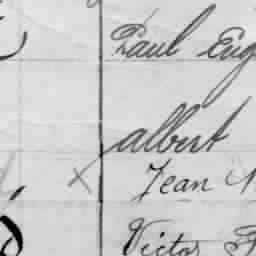 Paul Eug
albert
Jean
Victor